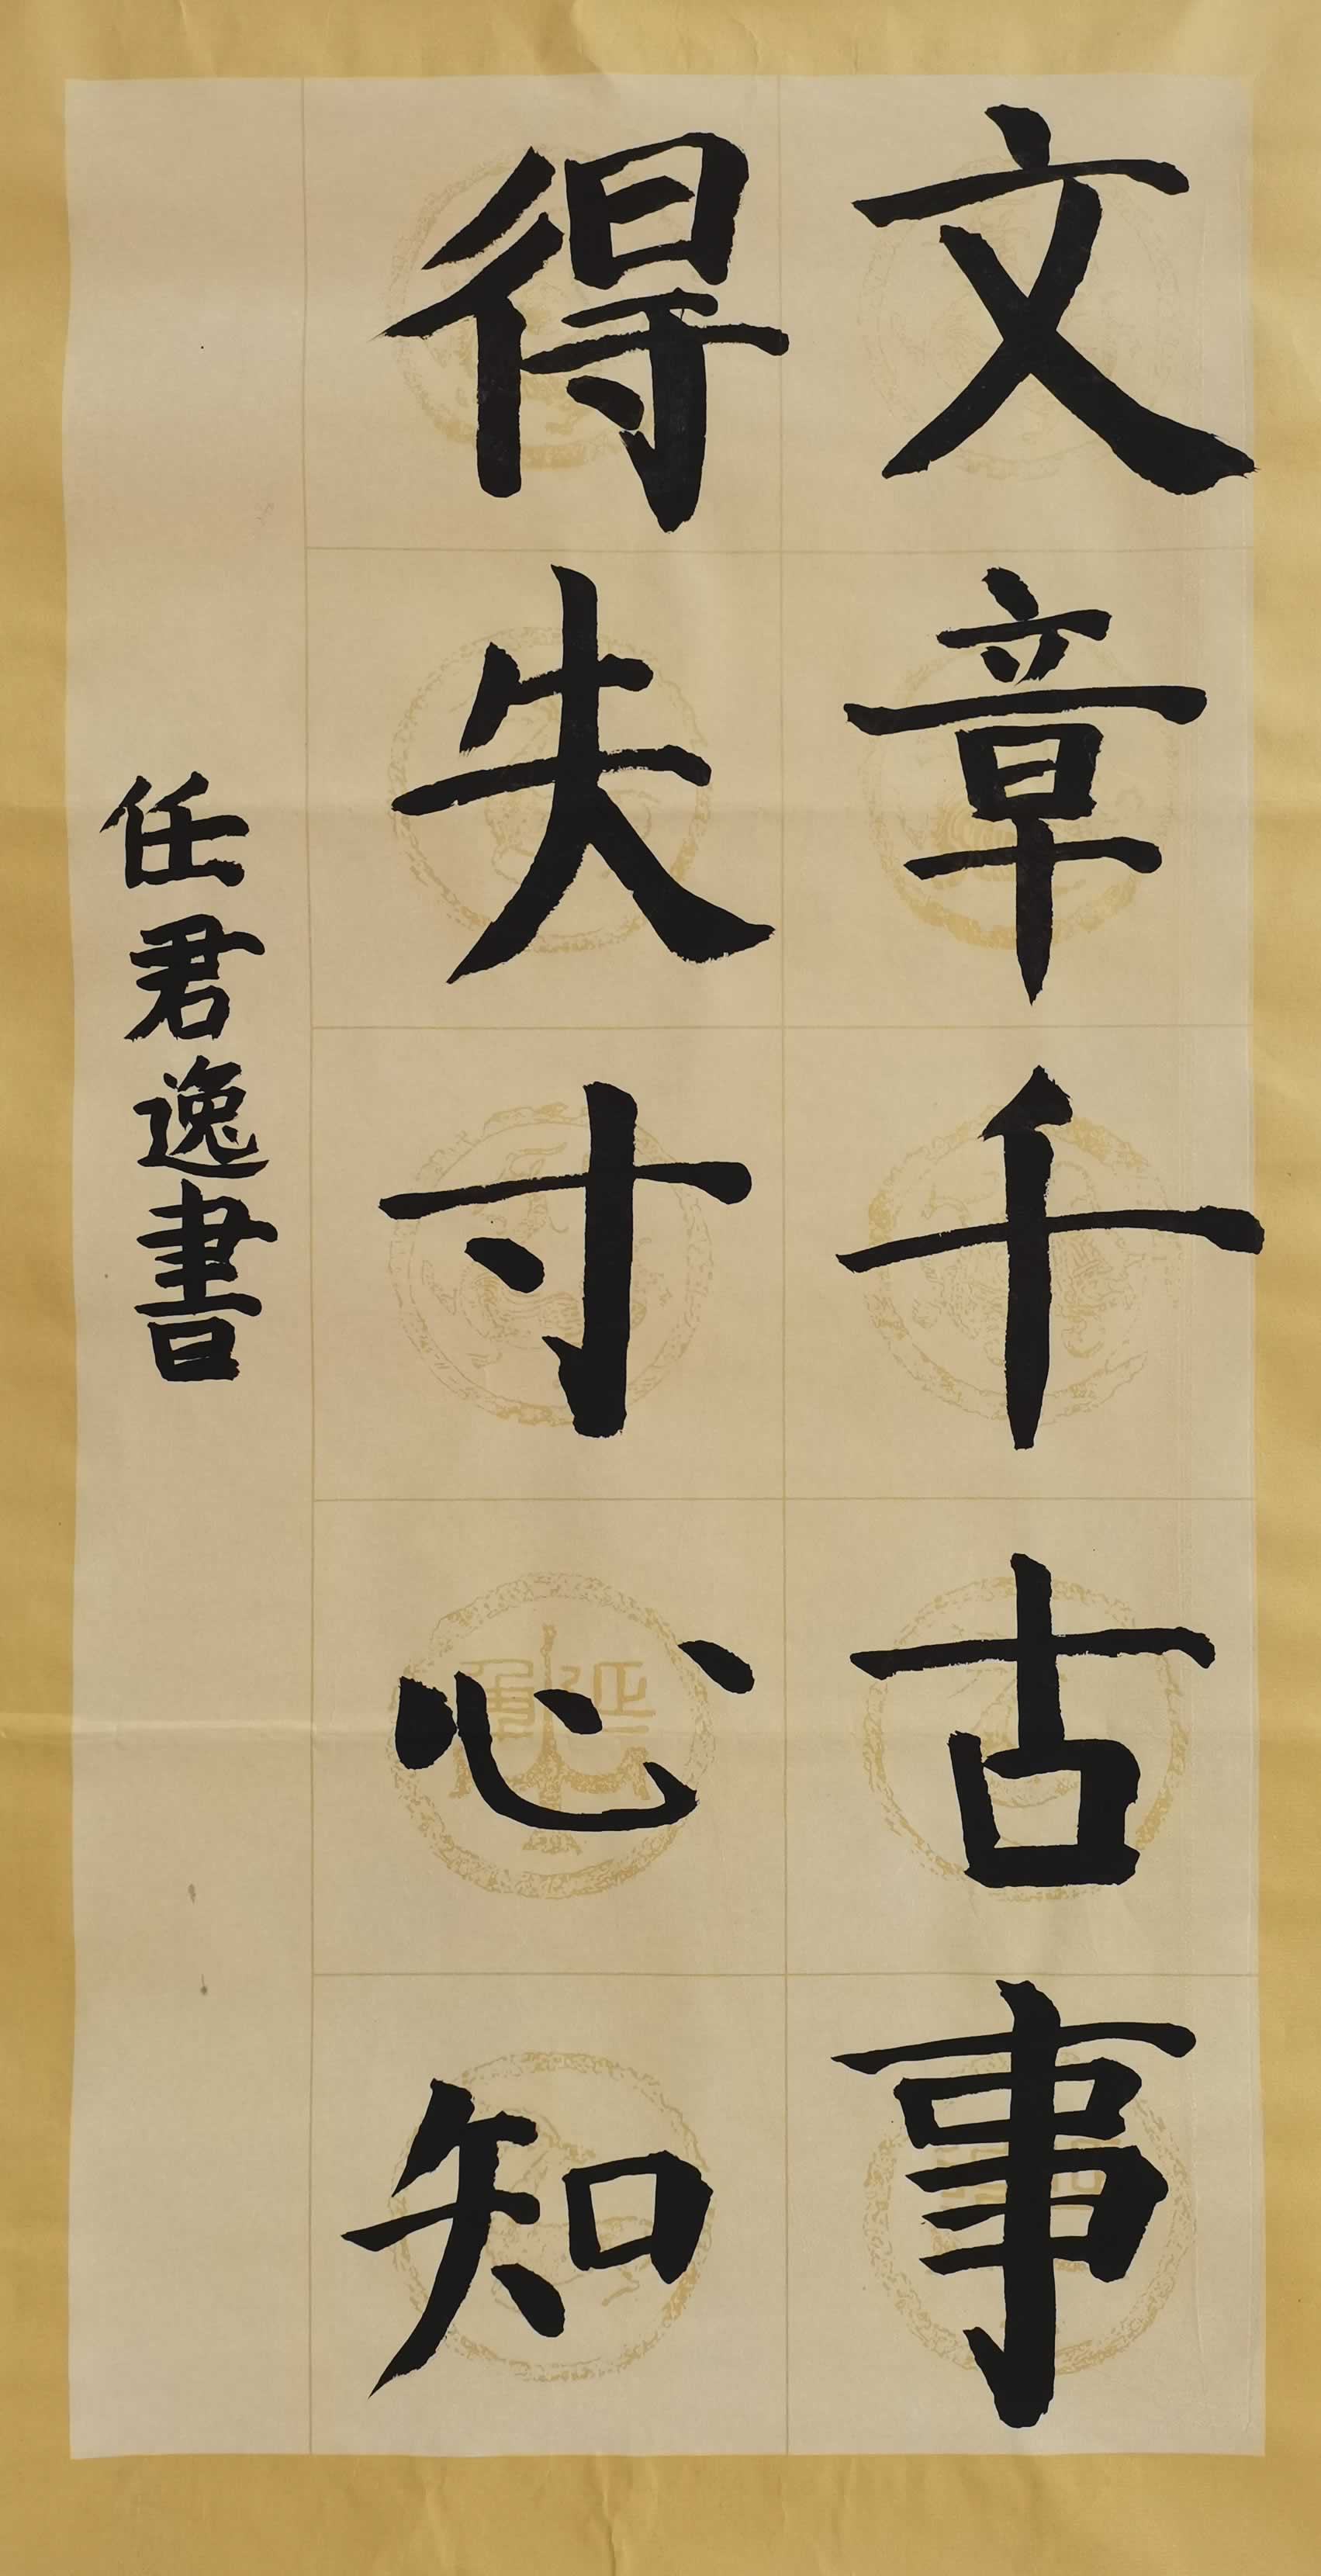 文章千古事
得失寸心知
任君逸書